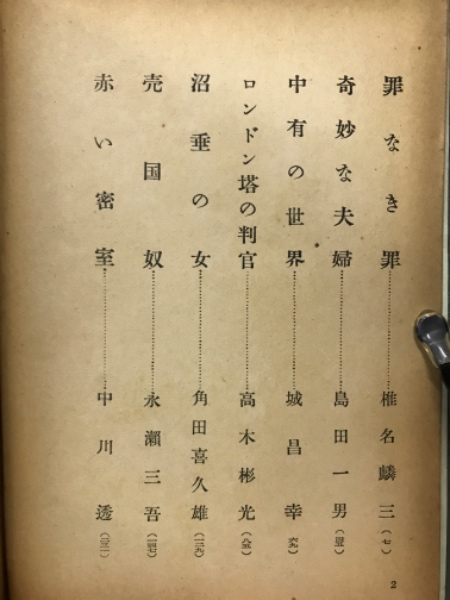 罪なき罪…………椎名麟三(七)
奇妙な夫婦…………島田一男
中有の世界…………城昌幸(六九)
ロンドン塔の判官…………高木彬光(八五)
沼垂の女…………角田喜久雄(一二九)
売国奴…………永瀬三吾
赤い密室…………中川透
2